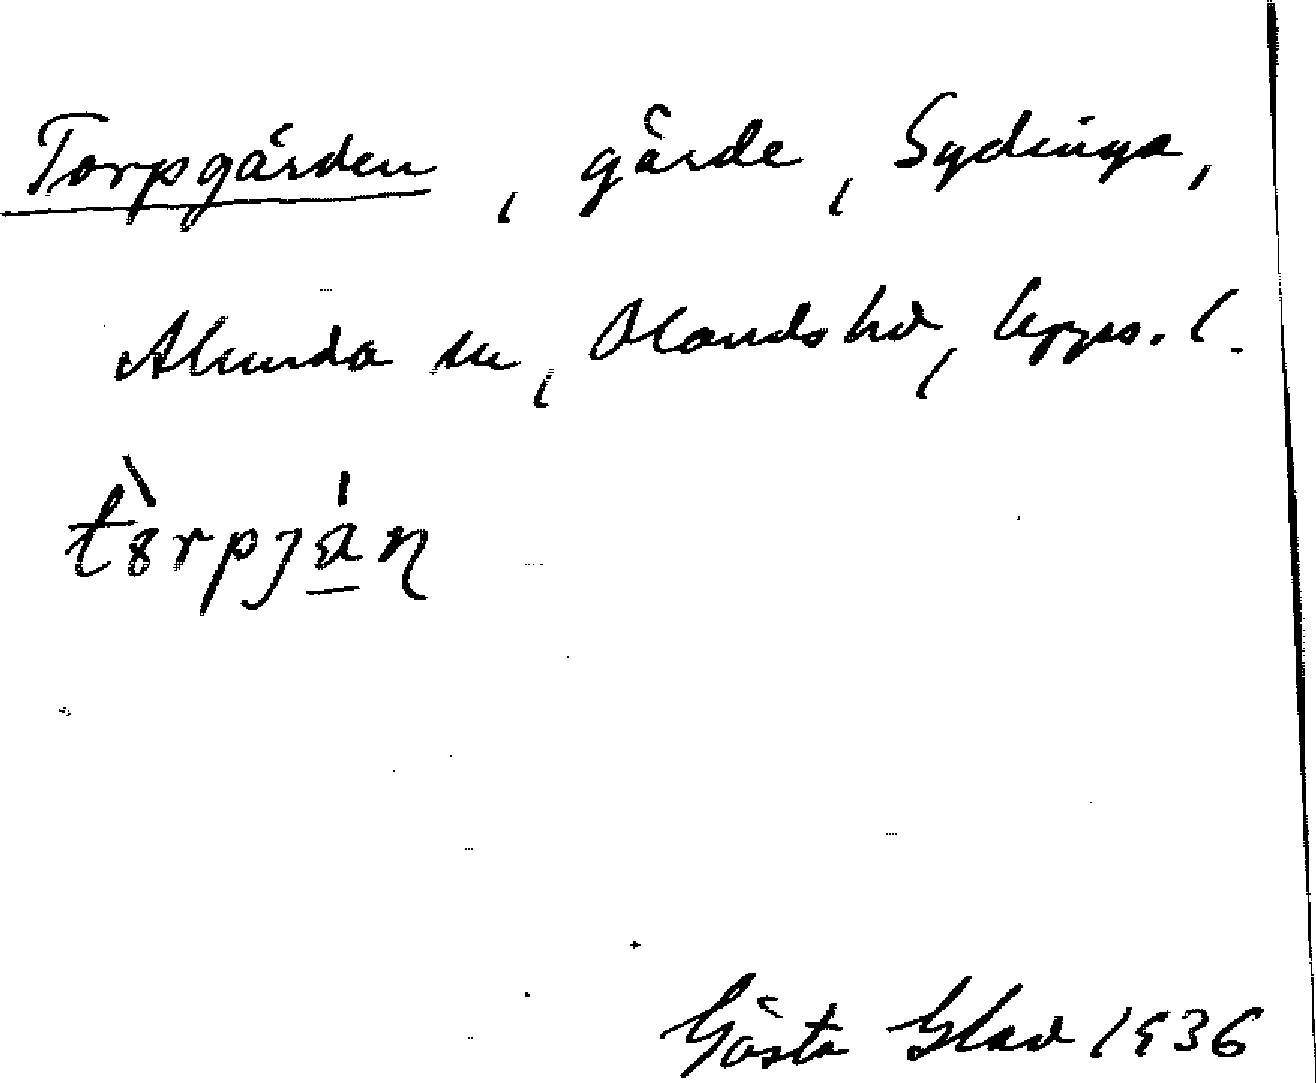 Torpgärden, gärde, Sydinga,
Alunda sn, Olands hd, Upps. l.
tȣ̀rpjá̱ɳ
Gösta Glad 1936